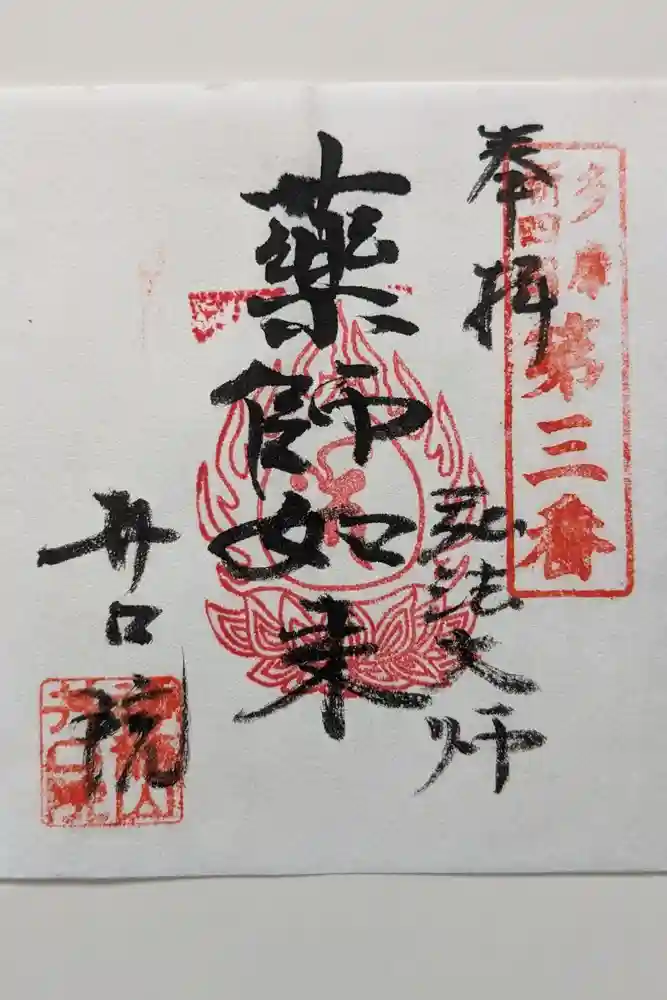 奉拝
多摩
新四国
第三番
弘法大師
薬師如来
井口院